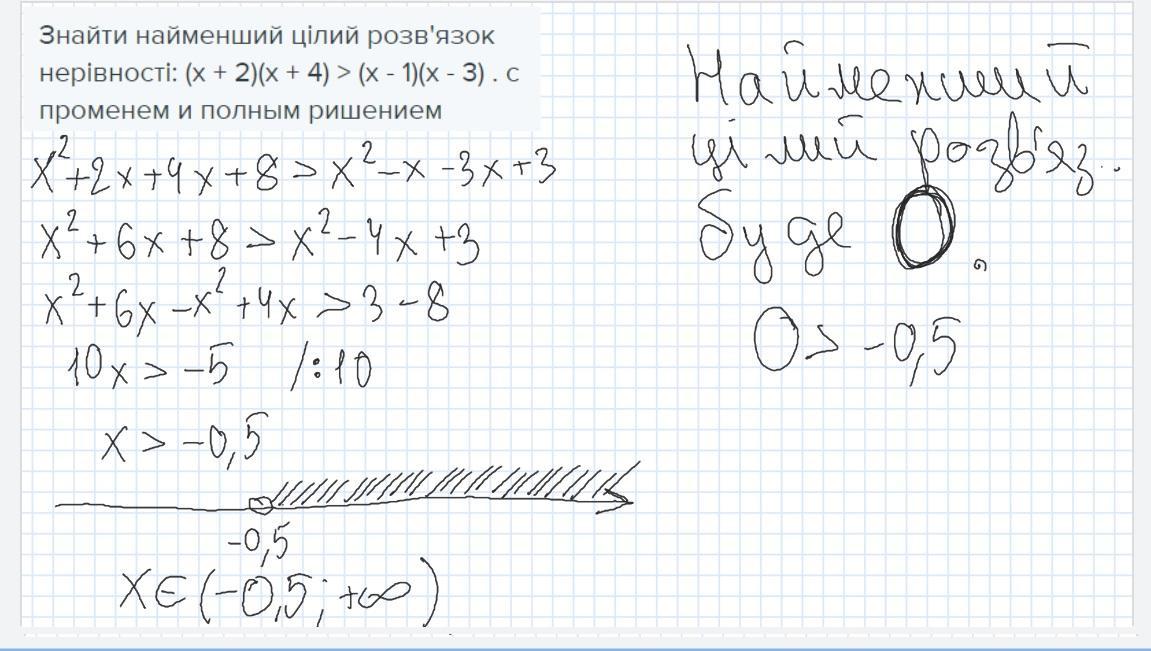 Знайти найменший цілий розв'язок
нерівності: (x + 2)(x + 4) > (x - 1)(x - 3) . с
променем и полным ришением
x²+2x+4x+8>x²-x-3x+3
x²+6x+8>x²-4x+3
x²+6x-x²+4x>3-8
10x>-5 /:10
x>-0,5
-0,5
x∈(-0,5;+∞)
Найменший
цілий розв'яз.
буде 0.
0>-0,5